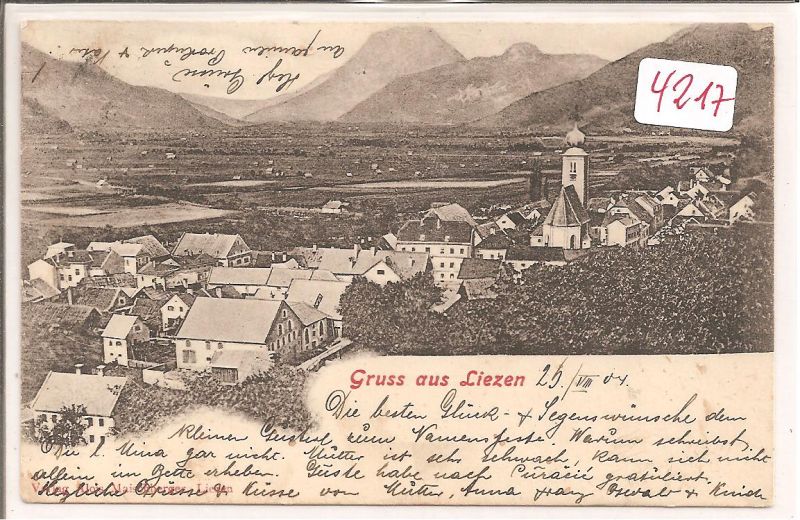 4217
Gruss aus Liezen 25/VIII 04
Die besten Glück- & Segenswünsche dem
kleinen Gusterl zum Namensfeste. Warum schreibst
Du l. Mina gar nicht. Mutter ist sehr schwach, kann sich nicht
allein im Bette erheben. Guste habe nach gratuliert.
Herzliche Grüsse & Küsse von Mutter, Anna & Kinder
Verlag Alois Liezen
Herzl. Grüsse